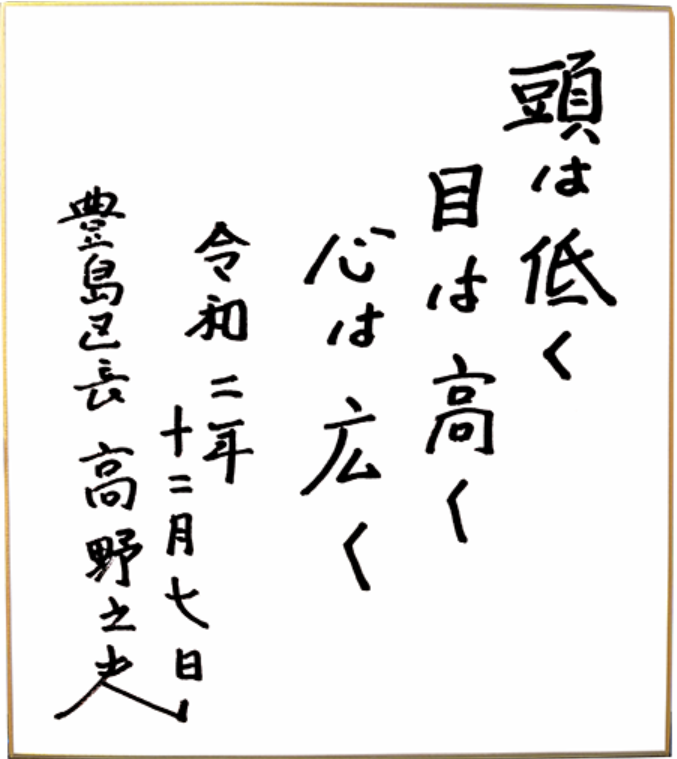 頭は低く
目は高く
心は広く
令和二年
十二月七日
豊島区長 高野之夫